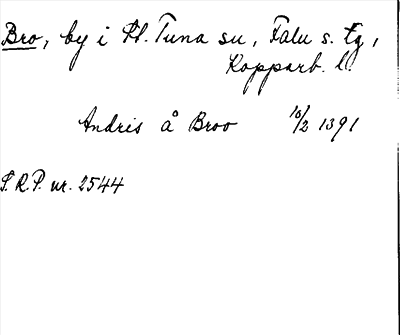 Bro, by i St. Tuna su, Falu s. tg,
Kopparb. l.
Andris å Broo 10/2 1391
S.R.P. nr. 2544